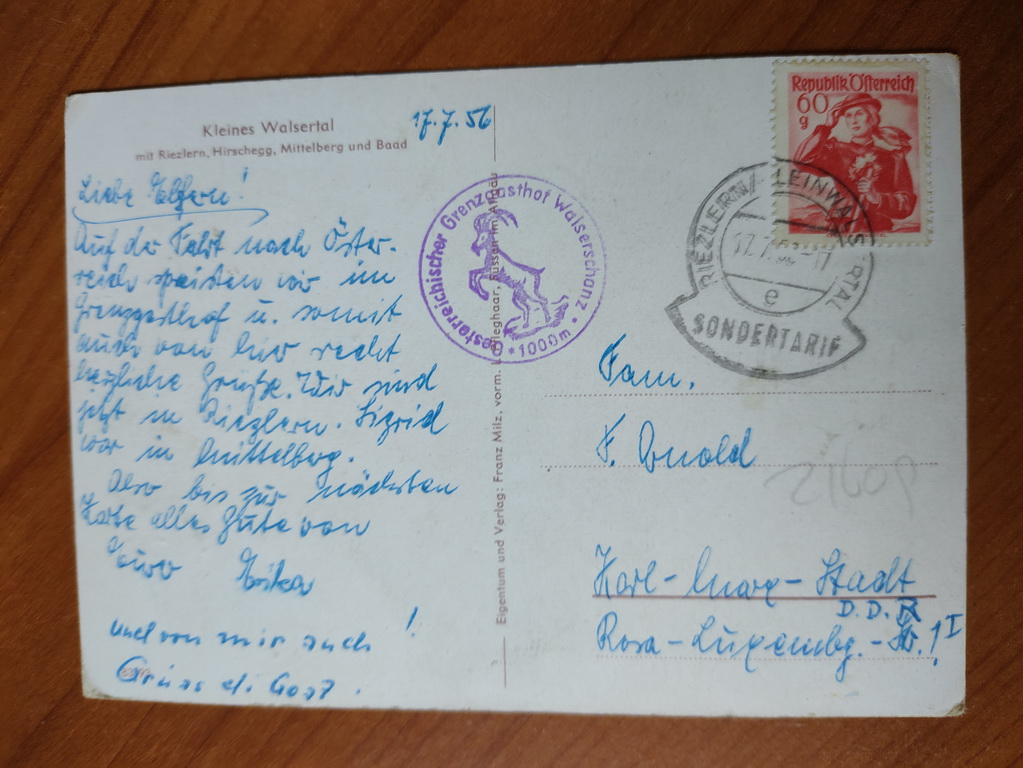 Kleines Walsertal
mit Riezlern, Hirschegg, Mittelberg und Baad
17.7.56
Liebe Eltern!
Auf der Fahrt nach Öster-
reich speisten wir im
Grenzgasthof u. somit
auch von hier recht
herzliche Grüße. Wir sind
jetzt in Riezlern. Sigrid
war in Mittelberg.
Also bis zur nächsten
Karte alles Gute von
Eure Erika
und von mir auch!
Grüss di Gott.
Eigentum und Verlag: Franz Milz, vorm. Füssen im Allgäu
Oesterreichischer Grenzgasthof Walserschanz * 1000m *
Republik Österreich
60
g
RIEZLERN / KLEINWALSERTAL
17.7.56-17
e
SONDERTARIF
Fam.
F. Arnold
Karl-Marx-Stadt
D.D.R
Rosa-Luxembg.-Str. 1 I